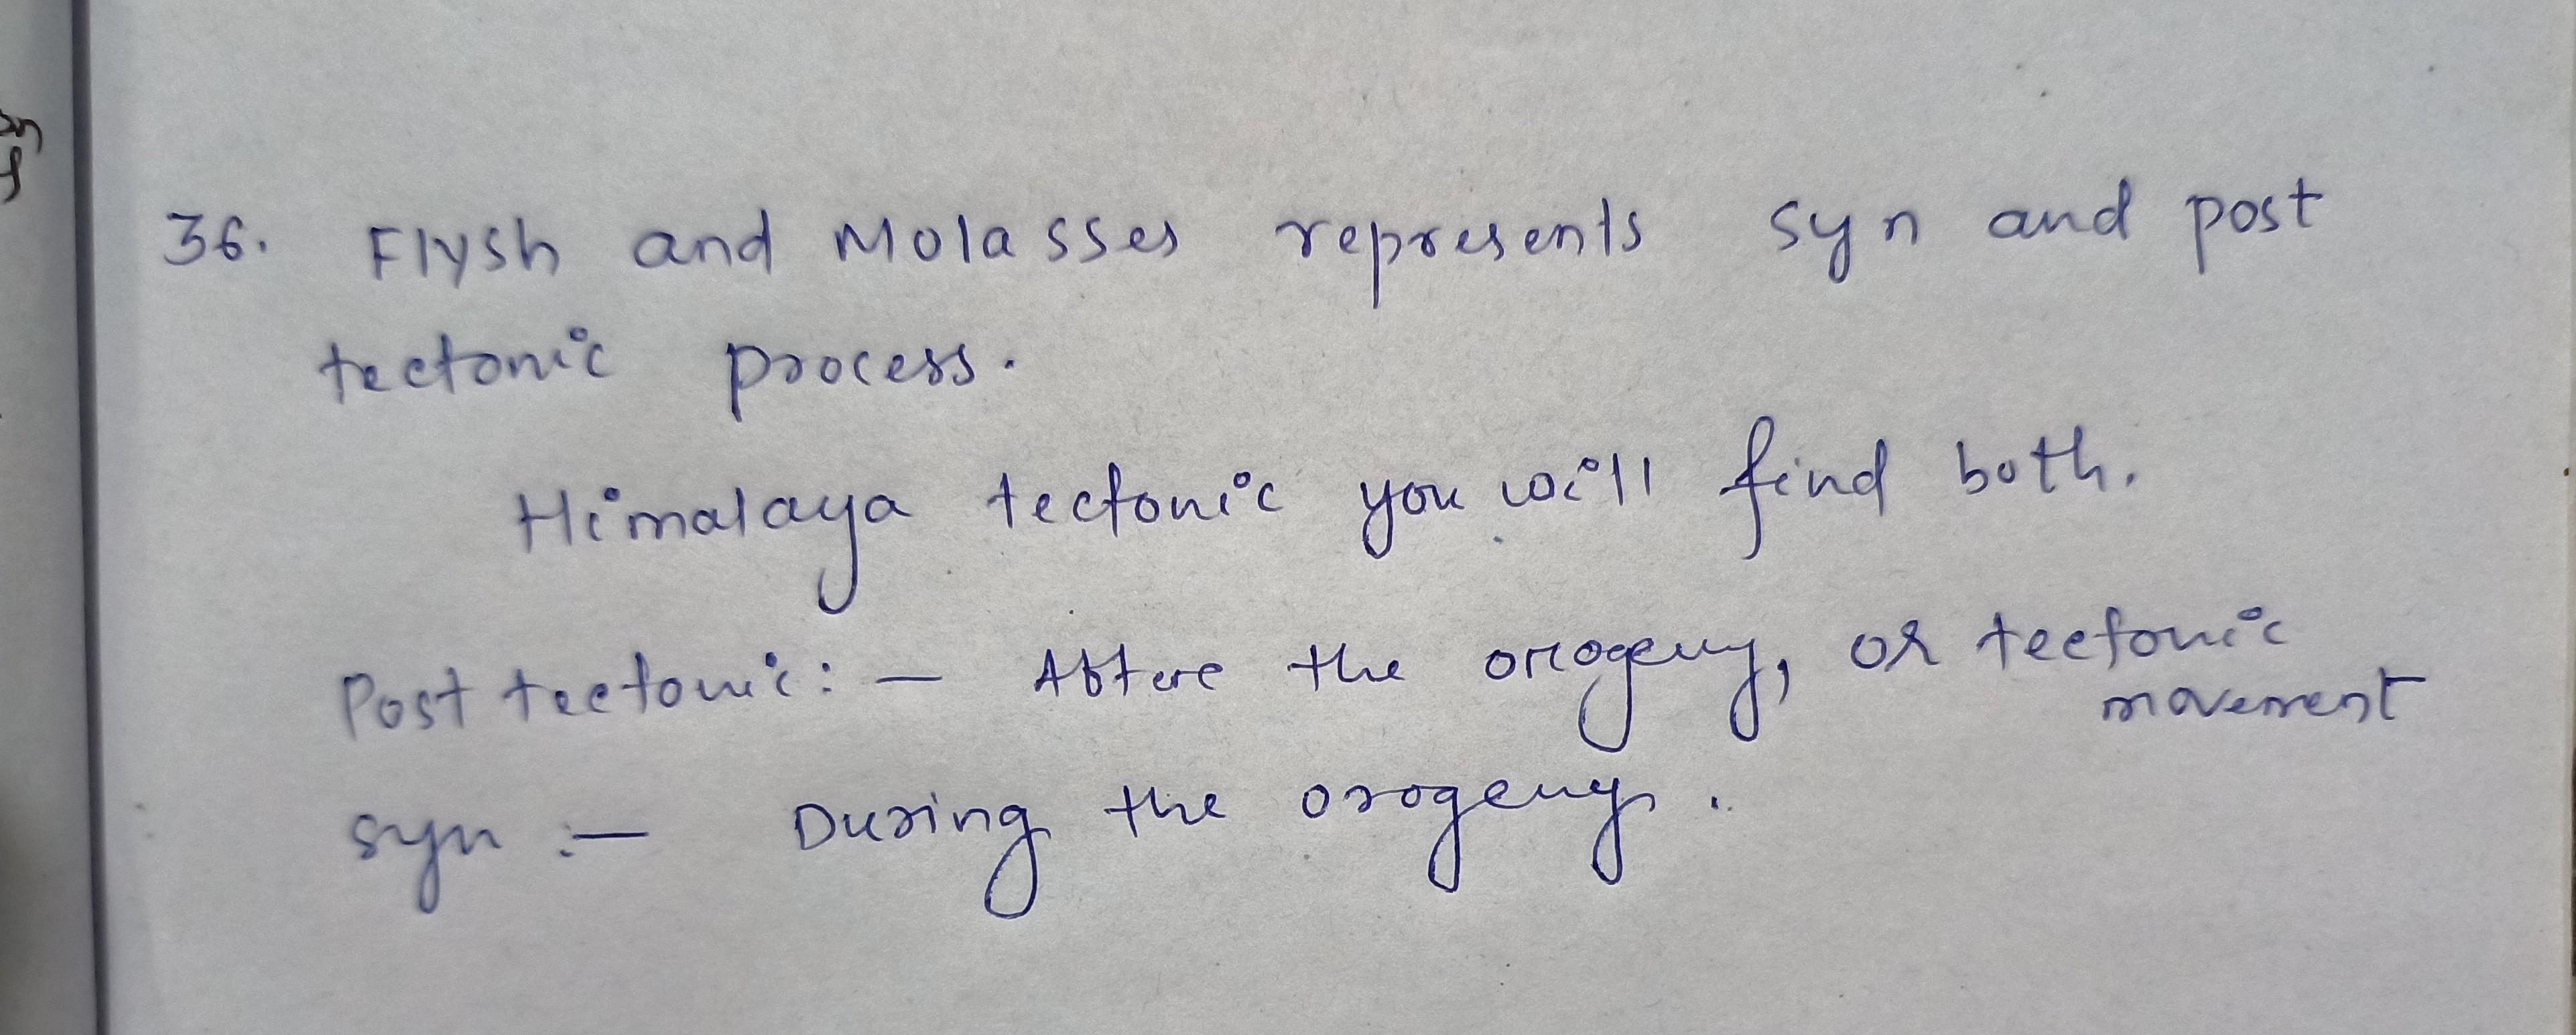 36. Flysh and Molasses represents syn and post
tectonic process.
Himalaya tectonic you will find both.
Post tectonic: — After the orogeny, or tectonic
movement
syn :— During the orogeny.